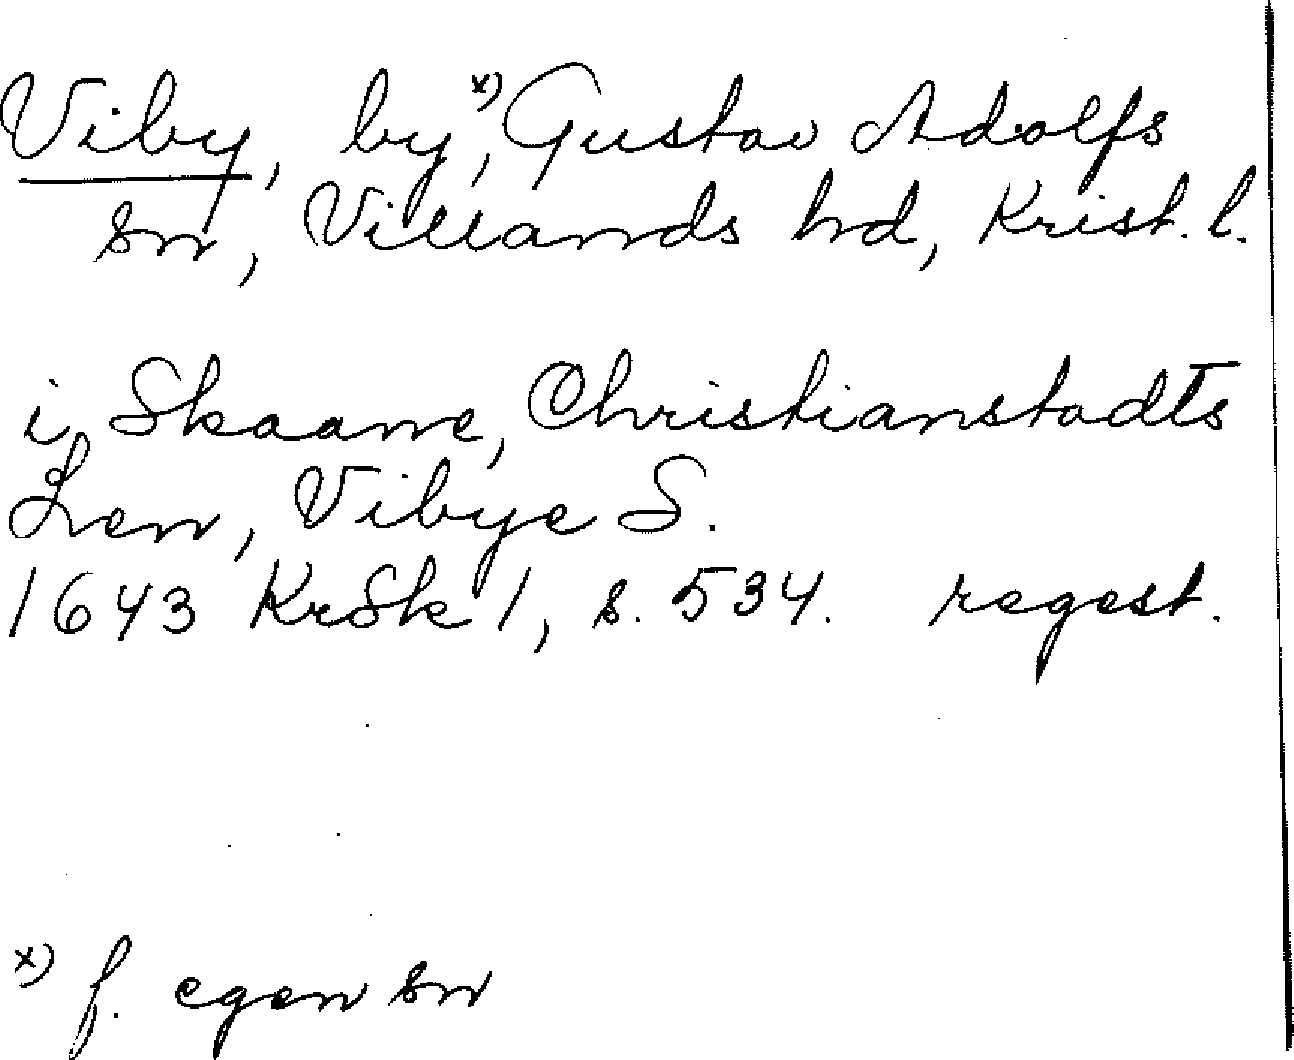 Viby, by,x) Gustav Adolfs
sn, Villands hd, Krist. l.
i Skaane, Christianstadts
Len, Vibye S.
1643 KrSk 1, s. 534. regest.
x) f. egen sn